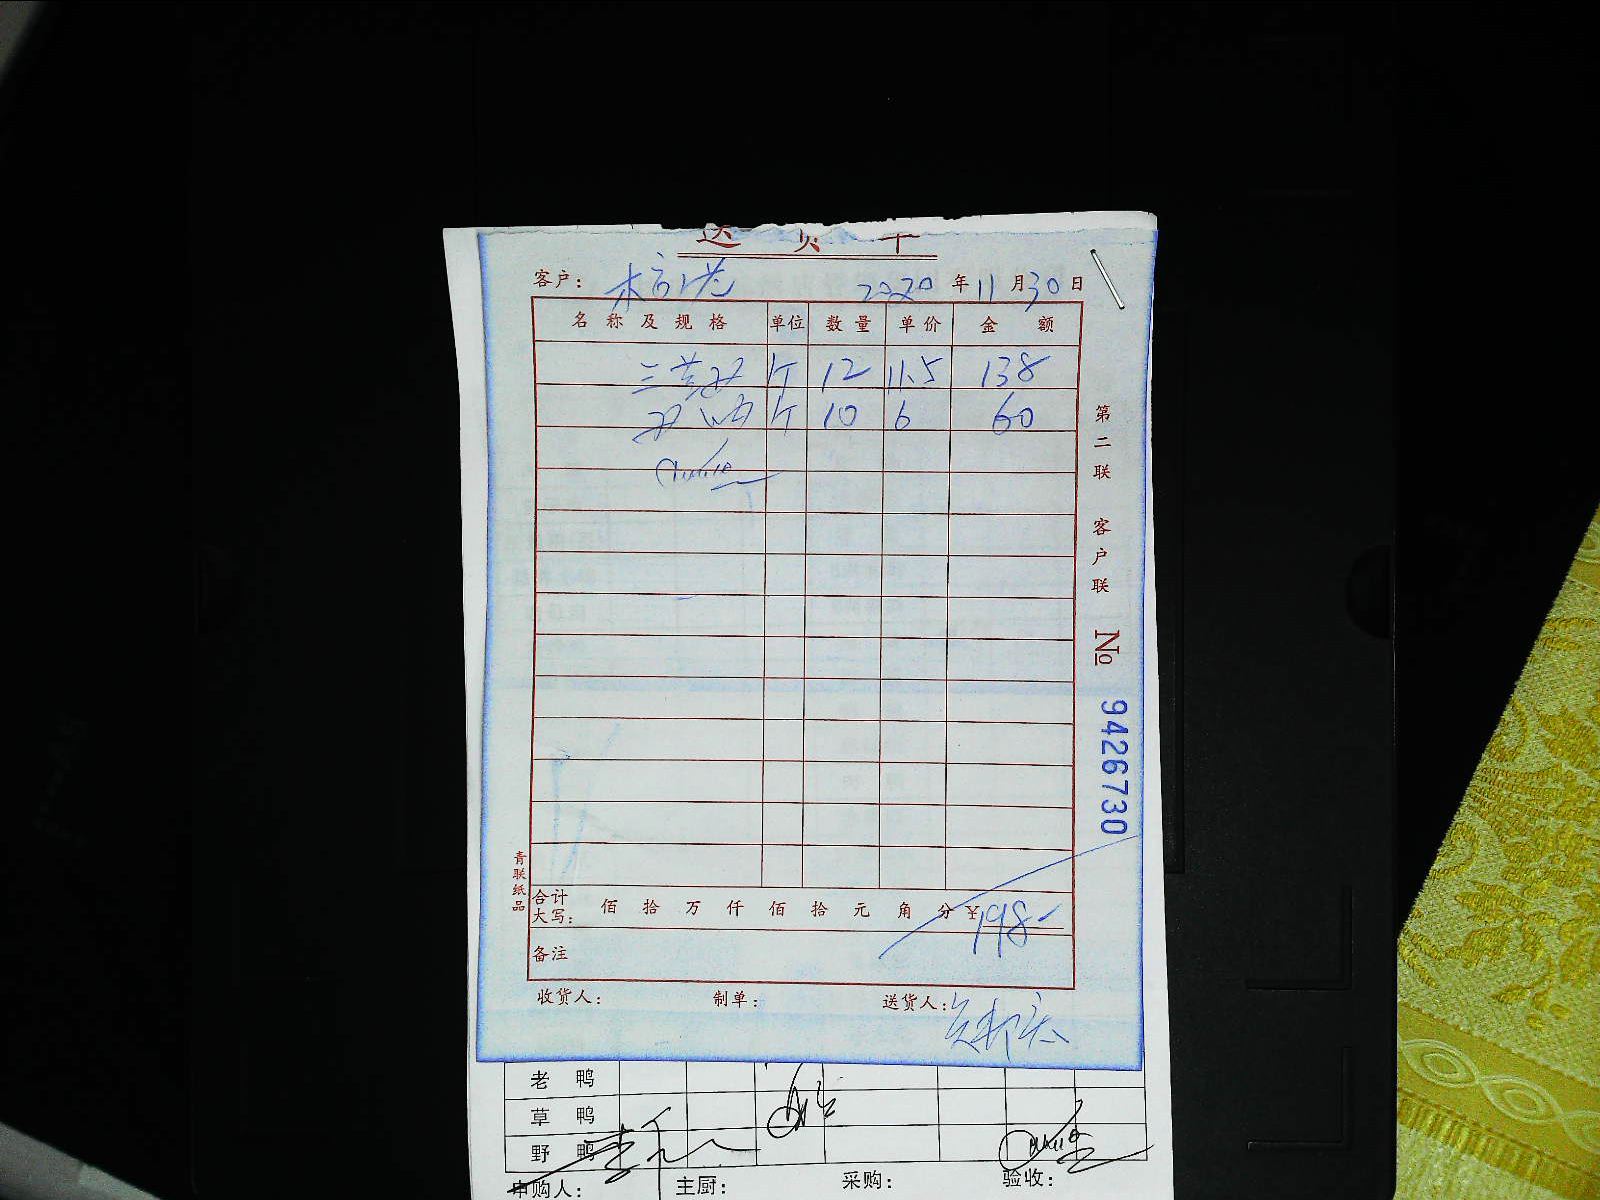 送货单
客户： 2020年11月30日
名称及规格 单位 数量 单价 金额
三黄鸡 个 12 11.5 138
个 10 6 60
合计大写： 佰 拾 万 仟 佰 拾 元 角 分 ¥198-
备注
收货人： 制单： 送货人：
第二联 客户联 № 9426730
青联纸品
老鸭
草鸭
野鸭
申购人： 主厨： 采购： 验收：